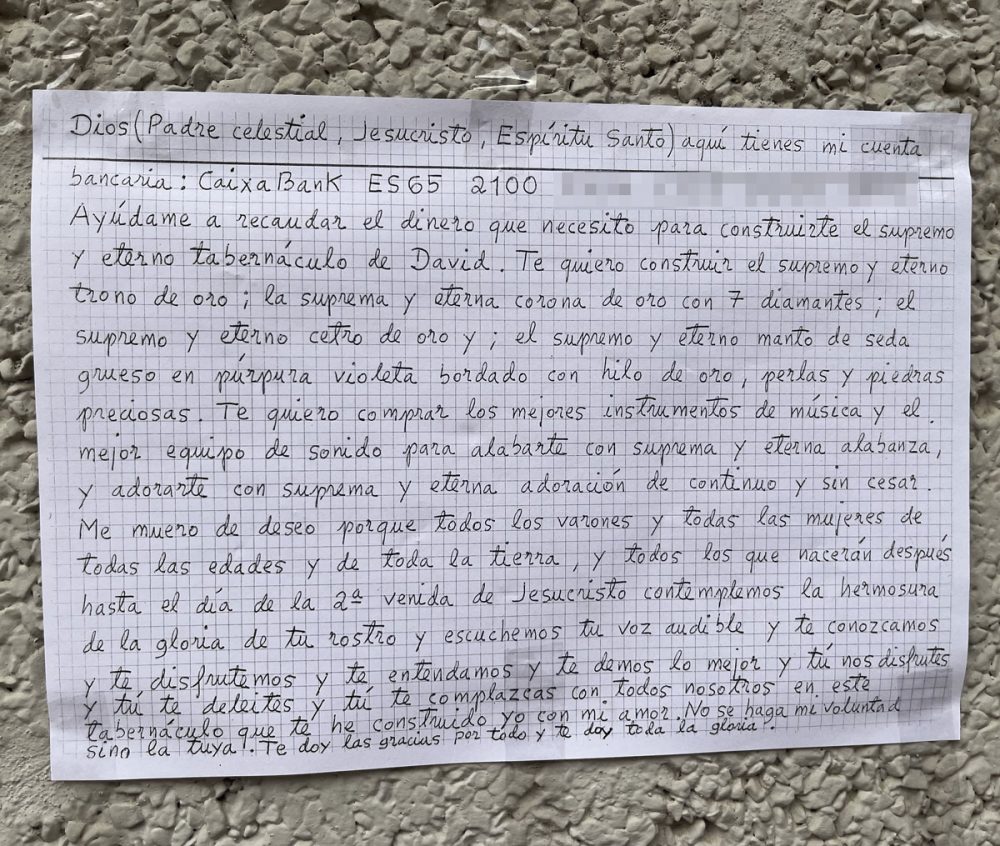 Dios (Padre celestial, Jesucristo, Espíritu Santo) aquí tienes mi cuenta
bancaria: CaixaBank ES65 2100
Ayúdame a recaudar el dinero que necesito para construirte el supremo
y eterno tabernáculo de David. Te quiero construir el supremo y eterno
trono de oro; la suprema y eterna corona de oro con 7 diamantes; el
supremo y eterno cetro de oro y; el supremo y eterno manto de seda
grueso en púrpura violeta bordado con hilo de oro, perlas y piedras
preciosas. Te quiero comprar los mejores instrumentos de música y el
mejor equipo de sonido para alabarte con suprema y eterna alabanza,
y adorarte con suprema y eterna adoración de continuo y sin cesar.
Me muero de deseo porque todos los varones y todas las mujeres de
todas las edades y de toda la tierra, y todos los que nacerán después
hasta el día de la 2ª venida de Jesucristo contemplemos la hermosura
de la gloria de tu rostro y escuchemos tu voz audible y te conozcamos
y te disfrutemos y te entendamos y te demos lo mejor y tú nos disfrutes
y tú te deleites y tú te complazcas con todos nosotros en este
tabernáculo que te he construido yo con mi amor. No se haga mi voluntad
sino la tuya. Te doy las gracias por todo y te doy toda la gloria.